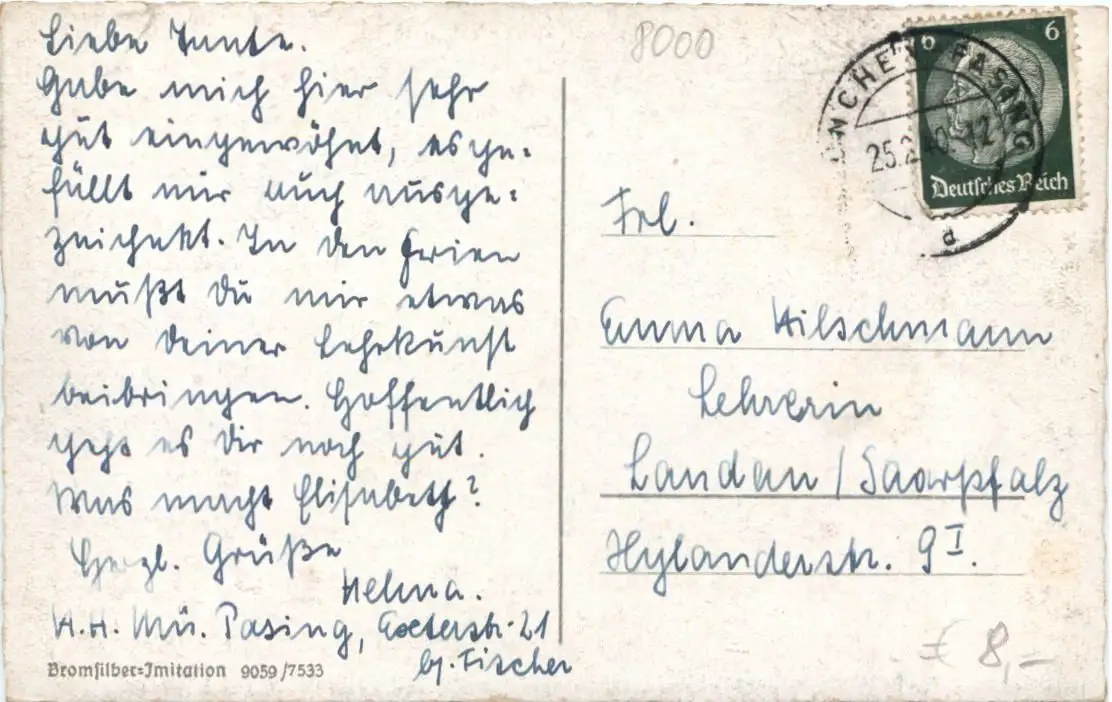 Liebe Tante.
Habe mich hier sehr
gut eingewöhnt, es ge-
fällt mir auch ausge-
zeichnet. In den Ferien
mußt Du mir etwas
von Deiner Lehrkunst
beibringen. Hoffentlich
geht es Dir noch gut.
Was macht Elisabeth?
Herzl. Grüße
Helma.
H.H. Mü. Pasing, Exterstr. 21
bj. Fischer
Bromsilber=Imitation 9059/7533
8000
6 6
Deutsches Reich
NCHEN-PASING
25.2.40-12
d
Frl.
Emma Hilschmann
Lehrerin
Landau / Saarpfalz
Hylanderstr. 9 I.
8,-